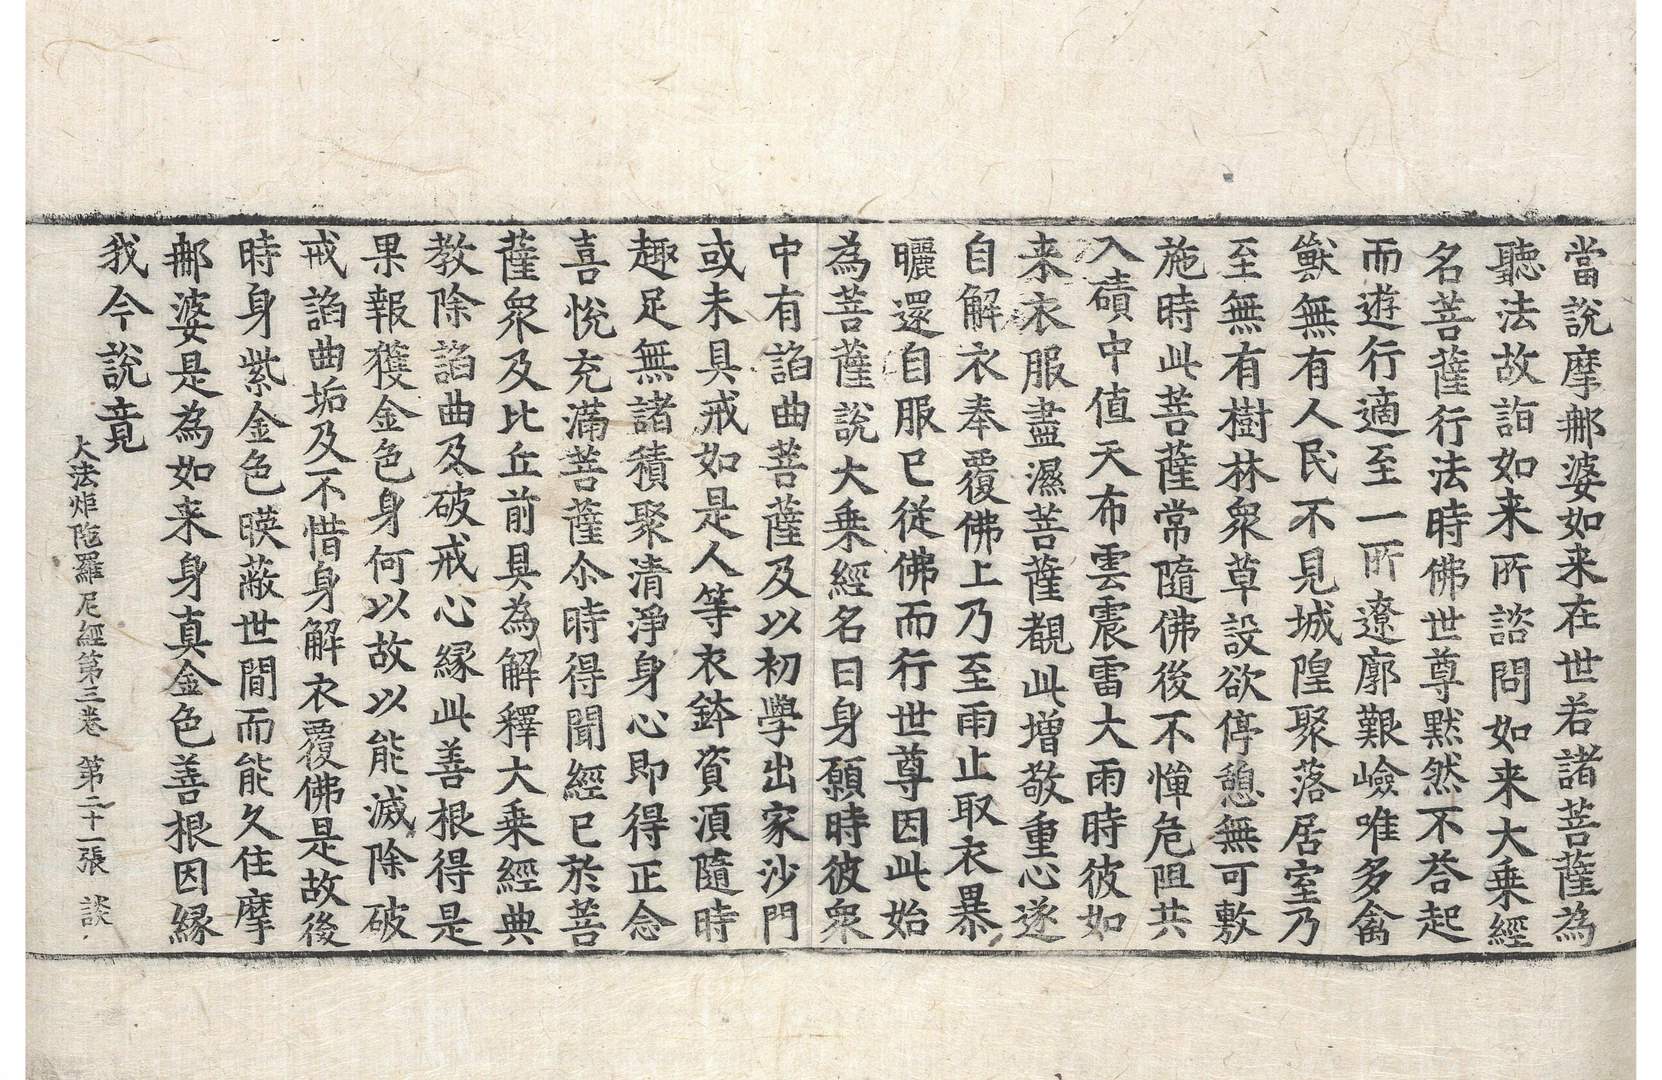 當説摩𨚗婆如来在世若諸菩薩為
聽法故詣如来所諮問如来大乗經
名菩薩行法時佛世尊黙然不荅起
而遊行適至一所遼廓艱嶮唯多禽
獸無有人民不見城隍聚落居室乃
至無有樹林衆草設欲停憩無可敷
施時此菩薩常隨佛後不憚危阻共
入磧中值天布雲震雷大雨時彼如
来衣服盡濕菩薩覩此增敬重心遂
自解衣奉覆佛上乃至雨止取衣暴
曬還自服已從佛而行世尊因此始
為菩薩説大乗經名曰身願時彼衆
中有諂曲菩薩及以初學出家沙門
或未具戒如是人等衣鉢資湏隨時
趣足無諸積聚清淨身心即得正念
喜悅充滿菩薩尒時得聞經已於菩
薩衆及比丘前具為解釋大乗經典
教除諂曲及破戒心緣此善根得是
果報獲金色身何以故以能滅除破
戒諂曲垢及不惜身解衣覆佛是故後
時身紫金色暎蔽世間而能久住摩
𨚗婆是為如来身真金色善根因緣
我今説竟
大法炬陁羅尼經第三卷 第二十一張 談